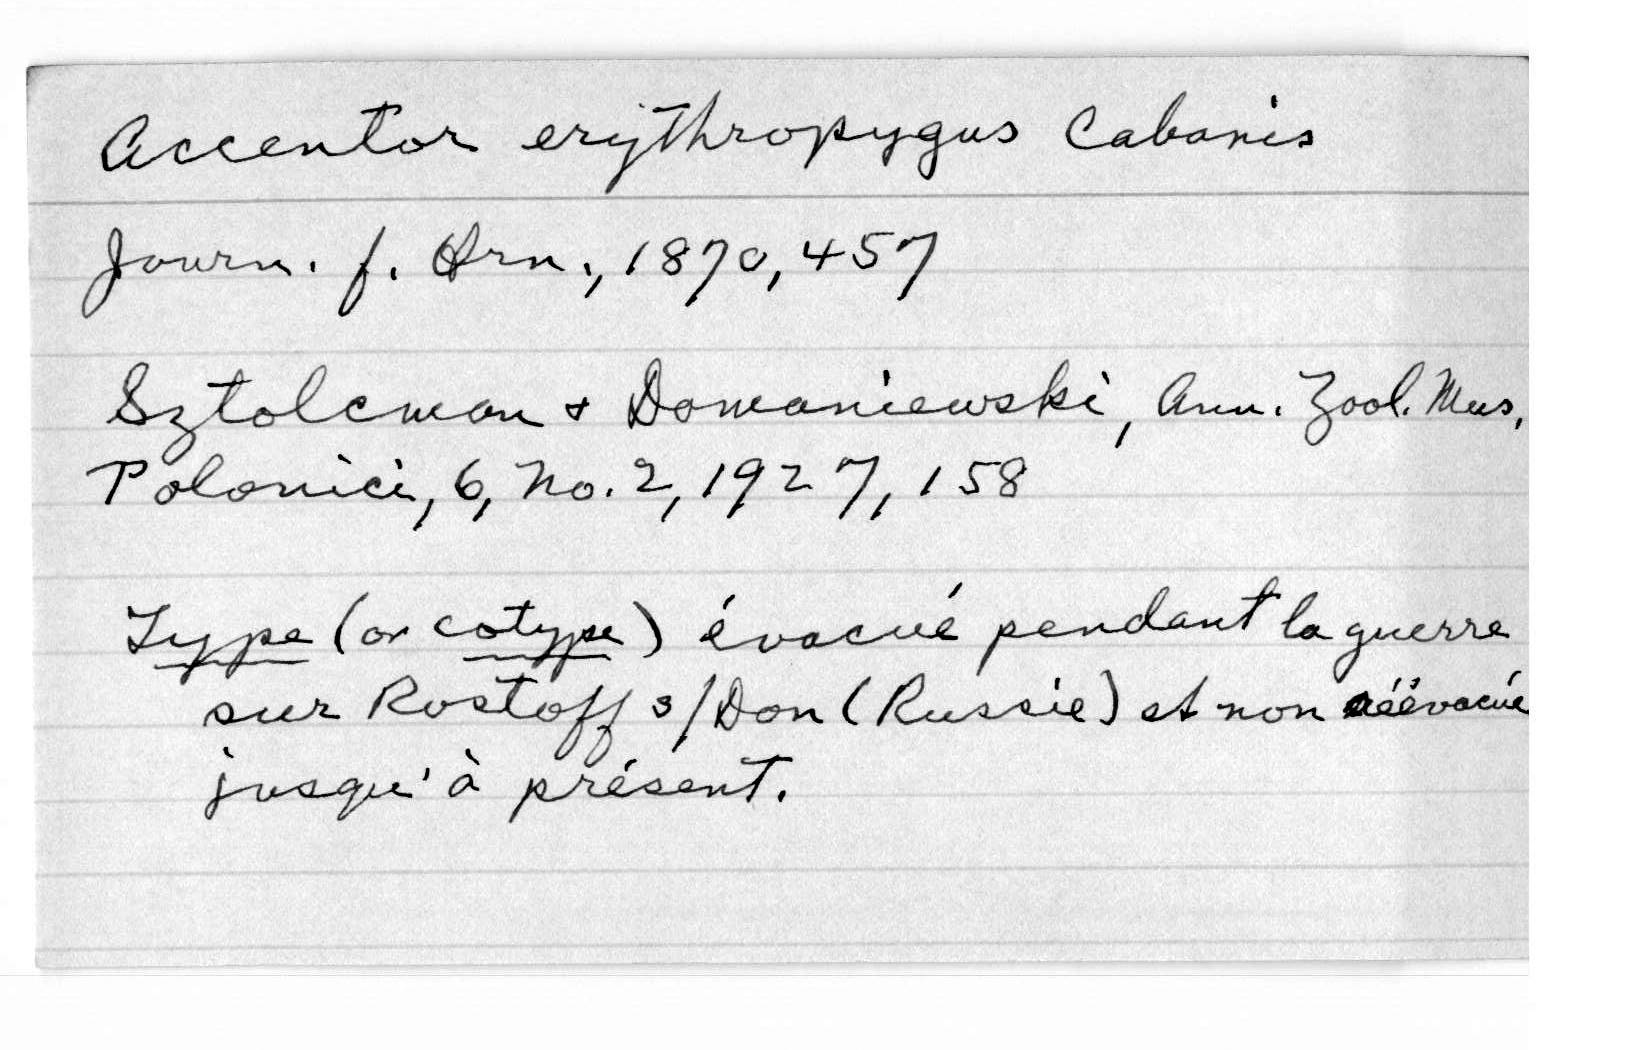 Accentor erythropygus Cabanis
Journ. f. Orn., 1870, 457
Sztolcman & Domaniewski, Ann. Zool. Mus.
Polonici, 6, No. 2, 1927, 158
Type (or cotype) évacué pendant la guerre
sur Rostoff s/Don (Russie) et non réévacué
jusqu'à présent.